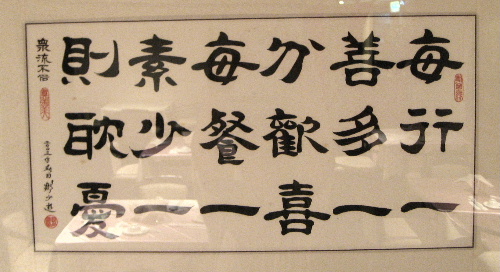 每行一
善多一
分歡喜
每餐一
素少一
則耽憂
流不俗